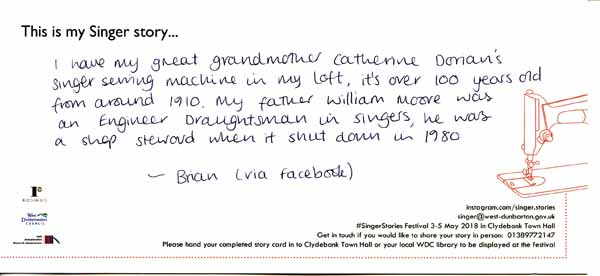 This is my Singer story...
I have my great grandmother Catherine Dorian's
singer sewing machine in my loft, it's over 100 years old
from around 1910. My father William Moore was
an Engineer Draughtsman in singers, he was
a shop steward when it shut down in 1980
– Brian (via facebook)
instagram.com/singer.stories
singer@west-dunbarton.gov.uk
#SingerStories Festival 3-5 May 2018 in Clydebank Town Hall
Get in touch if you would like to share your story in person: 01389772147
Please hand your completed story card in to Clydebank Town Hall or your local WDC library to be displayed at the festival